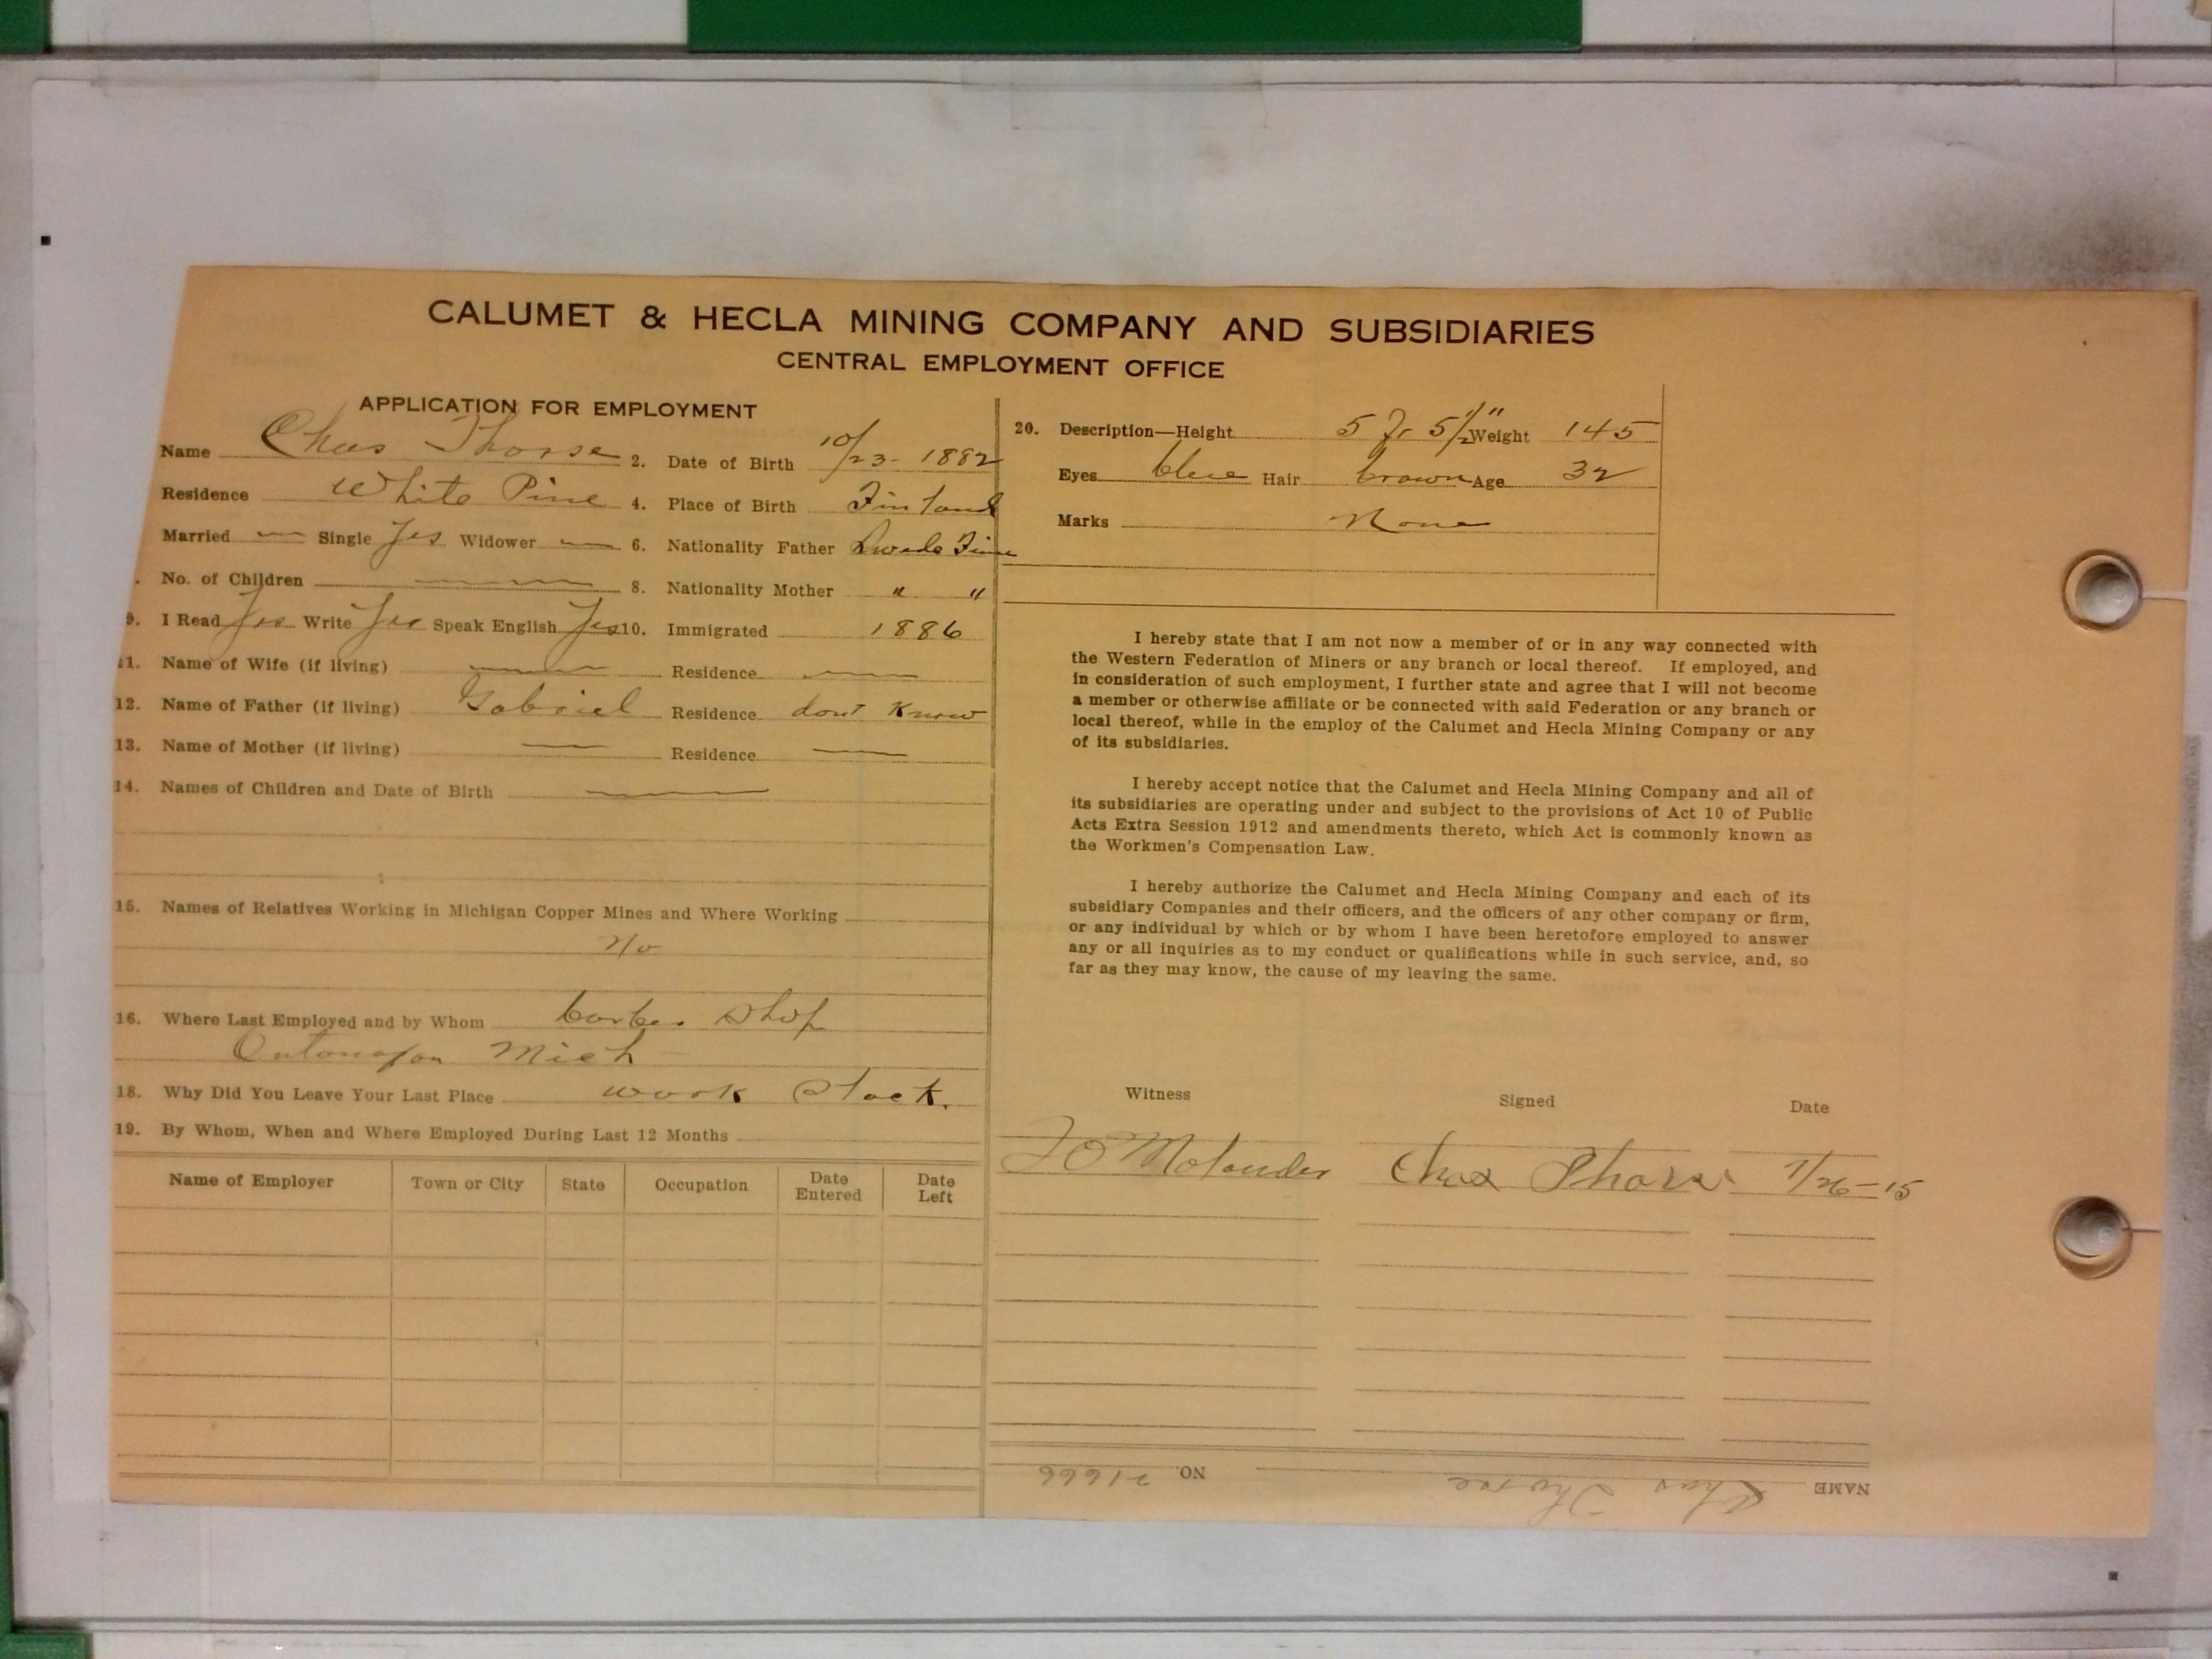 CALUMET & HECLA MINING COMPANY AND SUBSIDIARIES
CENTRAL EMPLOYMENT OFFICE
APPLICATION FOR EMPLOYMENT
Name Chas Thorse 2. Date of Birth 10/23-1882
Residence White Pine 4. Place of Birth Finland
Married — Single Yes Widower — 6. Nationality Father Swede Finn
. No. of Children — 8. Nationality Mother " "
9. I Read Yes Write Yes Speak English Yes 10. Immigrated 1886
11. Name of Wife (if living) — Residence —
12. Name of Father (if living) Gabriel Residence dont Know
13. Name of Mother (if living) — Residence —
14. Names of Children and Date of Birth —
15. Names of Relatives Working in Michigan Copper Mines and Where Working
No
16. Where Last Employed and by Whom barber shop
Ontonagon Mich
18. Why Did You Leave Your Last Place work slack.
19. By Whom, When and Where Employed During Last 12 Months
Name of Employer Town or City State Occupation Date Entered Date Left
20. Description—Height 5 Ft 5 1/2" Weight 145
Eyes blue Hair brown Age 32
Marks None
I hereby state that I am not now a member of or in any way connected with
the Western Federation of Miners or any branch or local thereof. If employed, and
in consideration of such employment, I further state and agree that I will not become
a member or otherwise affiliate or be connected with said Federation or any branch or
local thereof, while in the employ of the Calumet and Hecla Mining Company or any
of its subsidiaries.
I hereby accept notice that the Calumet and Hecla Mining Company and all of
its subsidiaries are operating under and subject to the provisions of Act 10 of Public
Acts Extra Session 1912 and amendments thereto, which Act is commonly known as
the Workmen's Compensation Law.
I hereby authorize the Calumet and Hecla Mining Company and each of its
subsidiary Companies and their officers, and the officers of any other company or firm,
or any individual by which or by whom I have been heretofore employed to answer
any or all inquiries as to my conduct or qualifications while in such service, and, so
far as they may know, the cause of my leaving the same.
Witness Signed Date
FO Molander Chas Thorse 1/26-15
NAME Chas Thorse NO. 21666